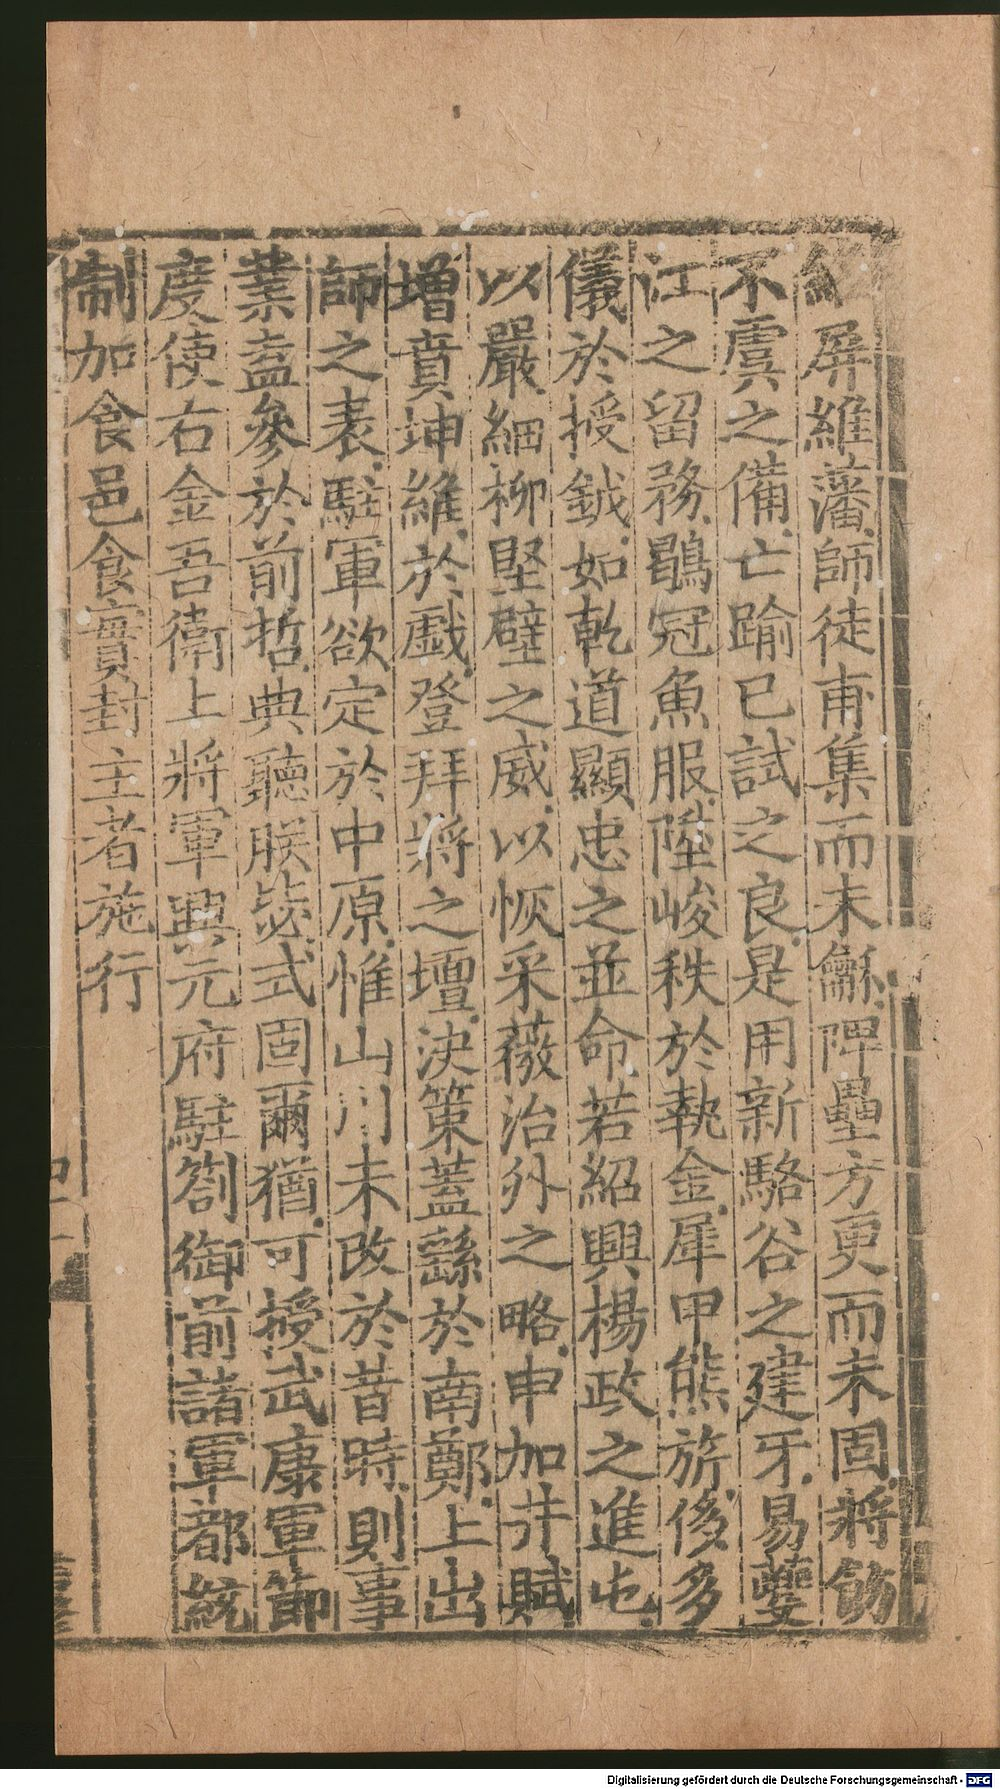 屏維藩師徒甫集而未龢陴壘方更而未固將飭
不虞之備亡踰已試之良是用新駱谷之建牙易夔
江之留務鶡冠魚服陞峻秩於執金犀甲熊旂侈多
儀於授鉞如乾道顯忠之並命若紹興楊政之進屯
以嚴細柳堅壁之威以恢采薇治外之略申加井賦
增賁坤維於戲登拜將之壇決策蓋繇於南鄭上出
師之表駐軍欲定於中原惟山川未改於昔時則事
業盍參於前哲典聽朕毖式固爾猶可授武康軍節
度使右金吾衛上將軍興元府駐劄御前諸軍都統
制加食邑食實封主者施行
Digitalisierung gefördert durch die Deutsche Forschungsgemeinschaft - DFG